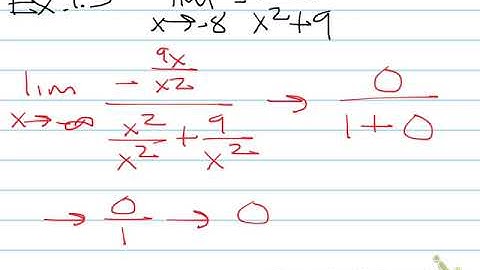 x→-8 x²+9
lim x→-∞ (- 9x/x2) / (x²/x² + 9/x²) → 0/(1+0)
→ 0/1 → 0